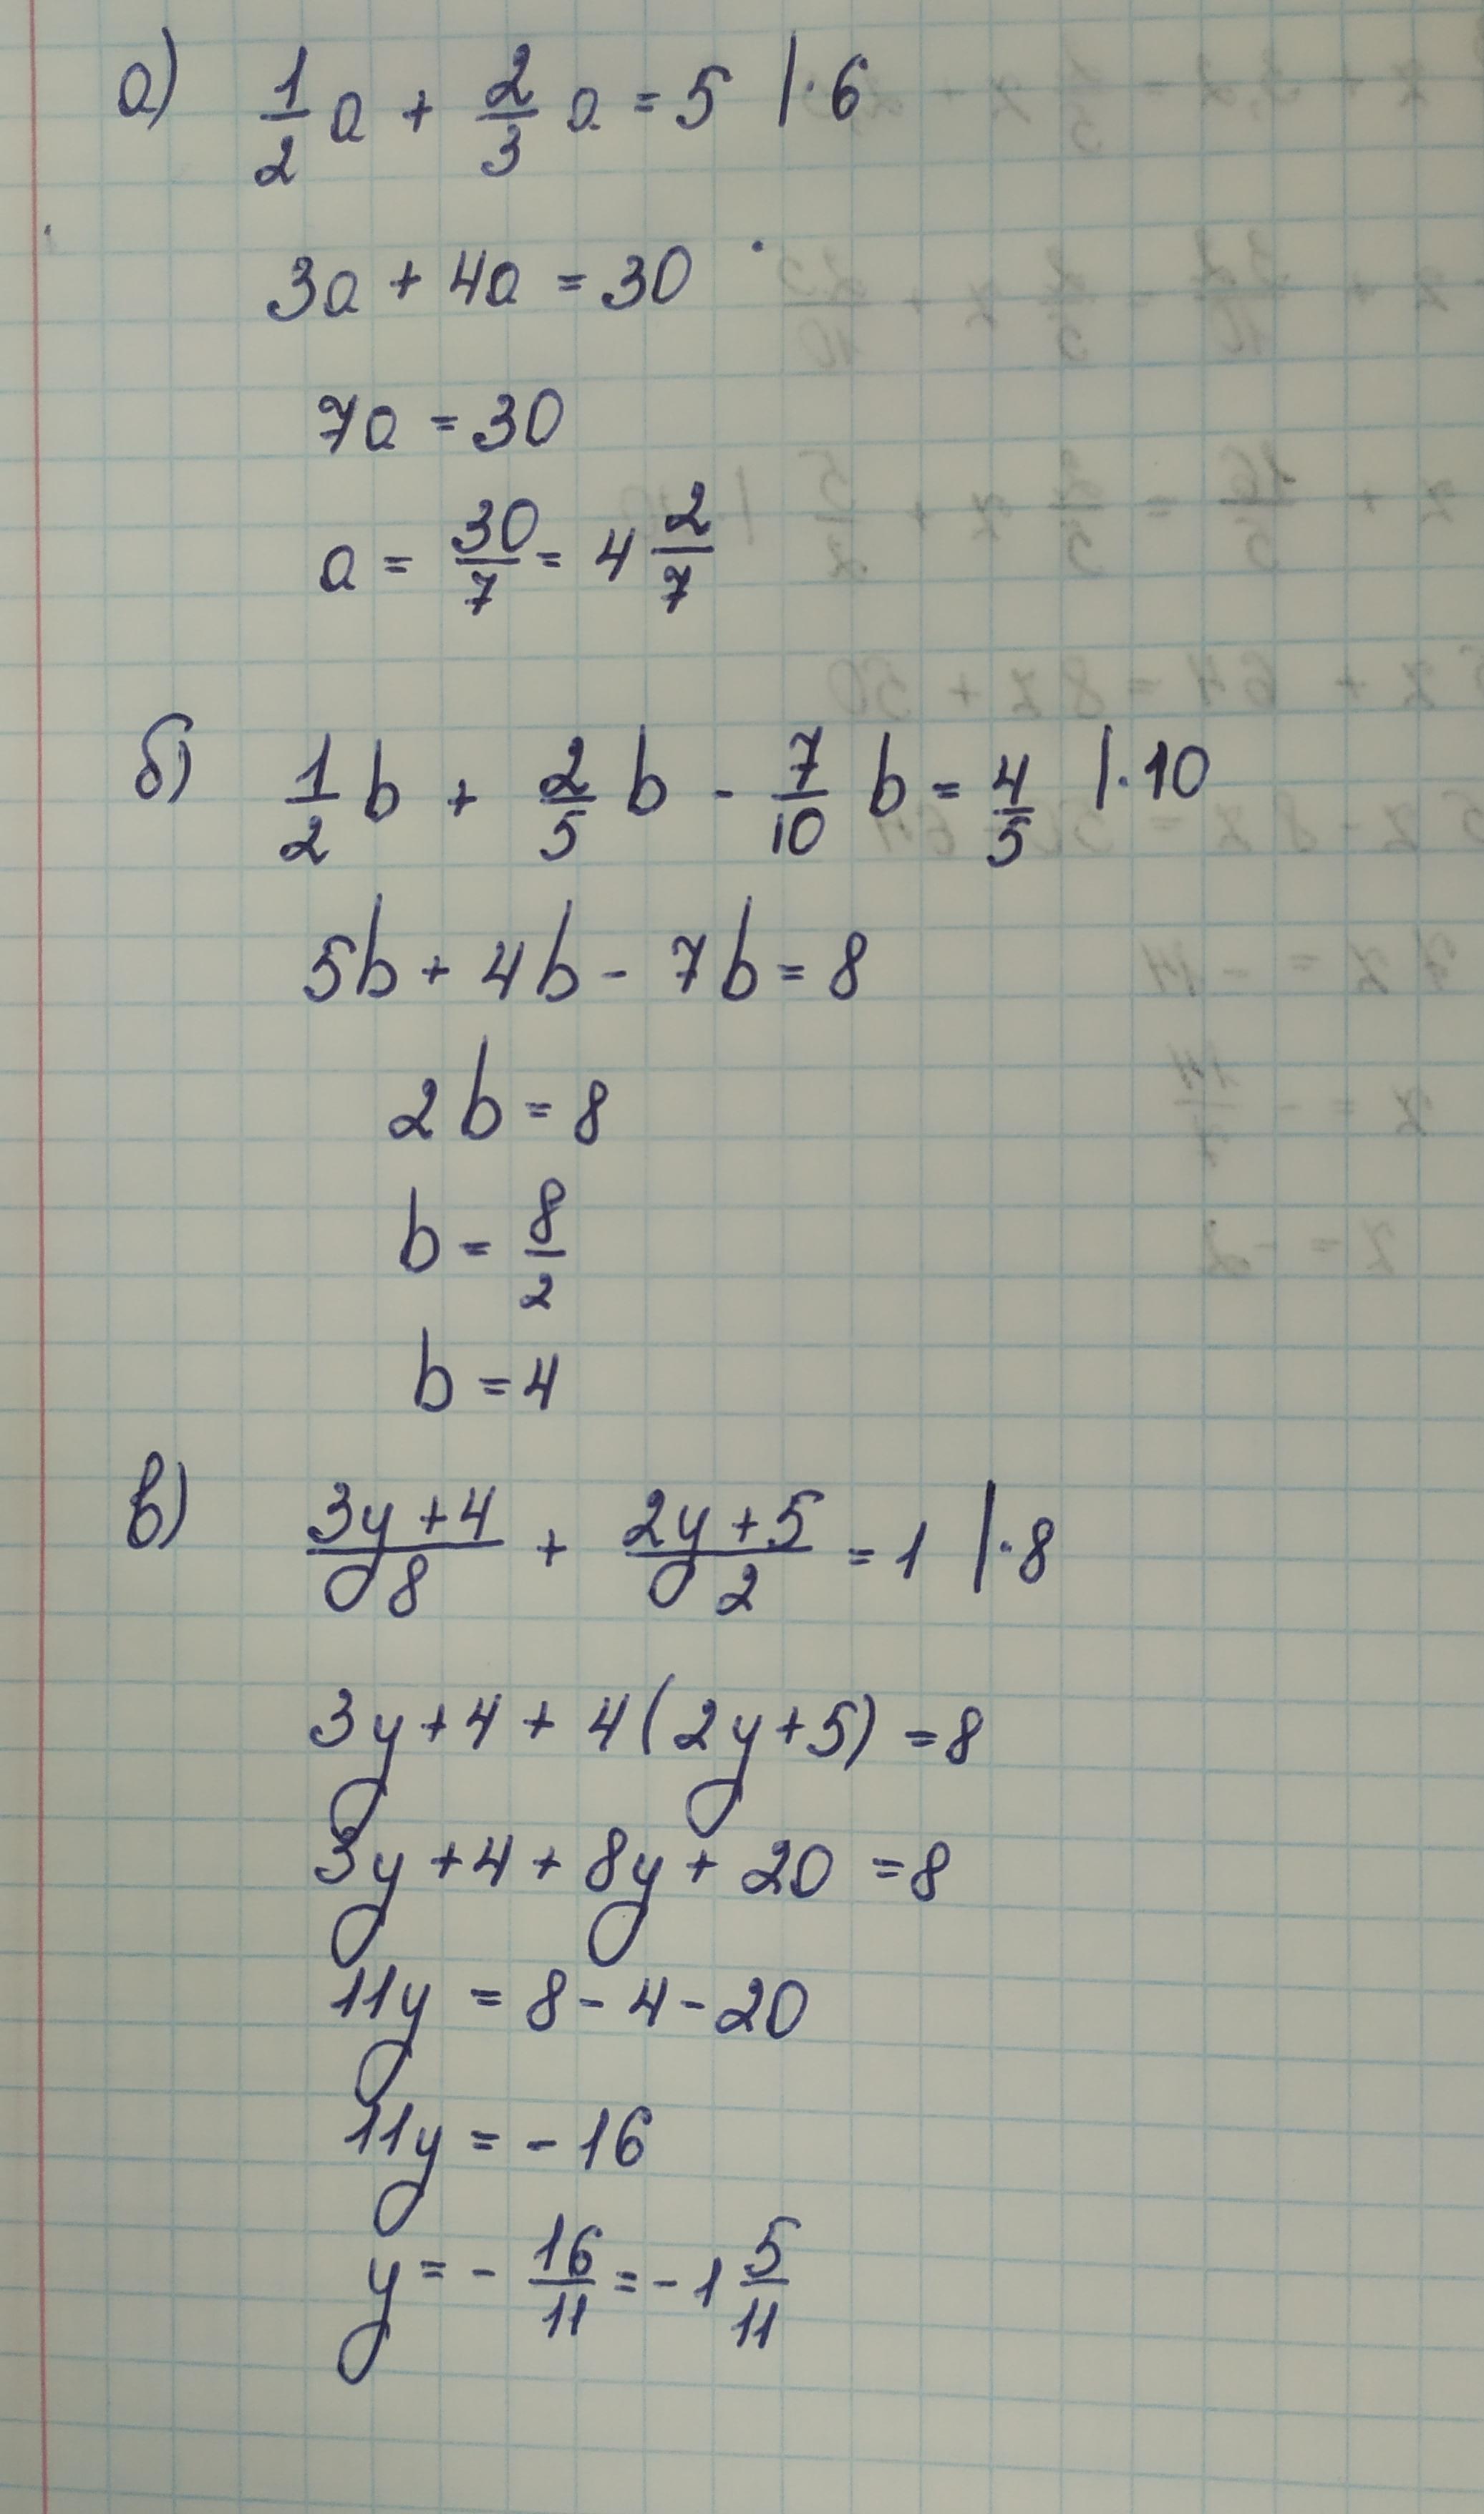 а) 1/2 a + 2/3 a = 5 |·6
3a + 4a = 30
7a = 30
a = 30/7 = 4 2/7
б) 1/2 b + 2/5 b - 7/10 b = 4/5 |·10
5b + 4b - 7b = 8
2b = 8
b = 8/2
b = 4
в) (3y+4)/8 + (2y+5)/2 = 1 |·8
3y+4 + 4(2y+5) = 8
3y+4 + 8y + 20 = 8
11y = 8 - 4 - 20
11y = -16
y = - 16/11 = -1 5/11